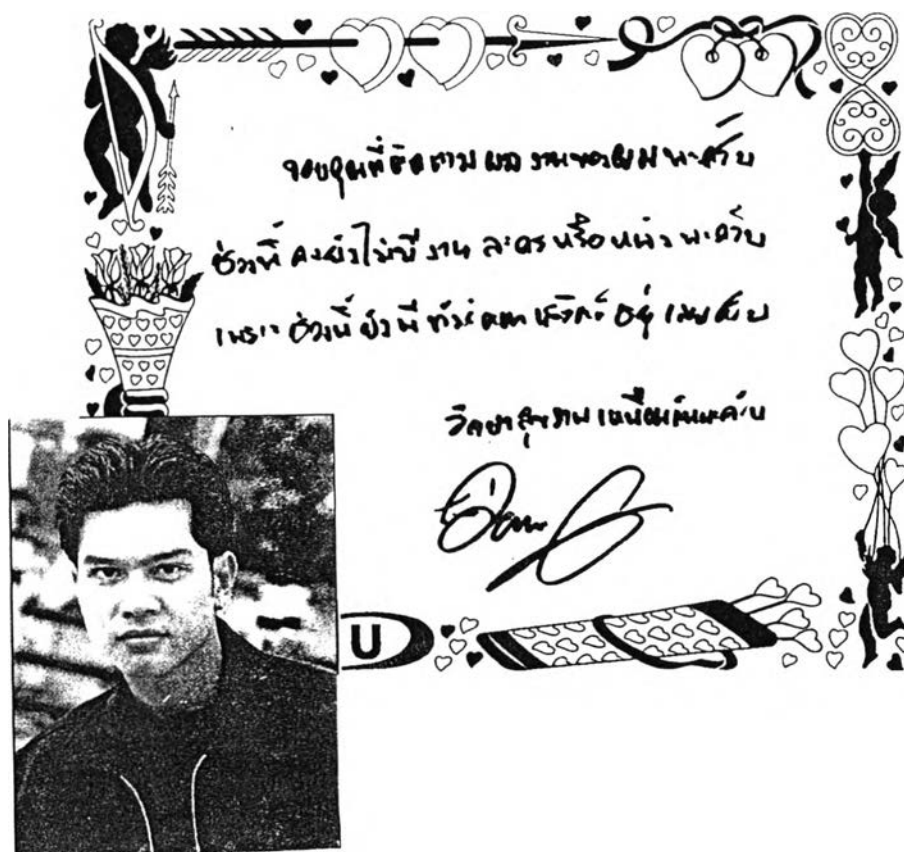 ขอบคุณที่ติดตามผลงานของผมนะครับ
ช่วงนี้คงยังไม่มีงานละครหรือหนังนะครับ
เพราะช่วงนี้ยังมีทัวร์คอนเสิร์ตอยู่เลยครับ
รักษาสุขภาพเหมือนกันนะครับ
U